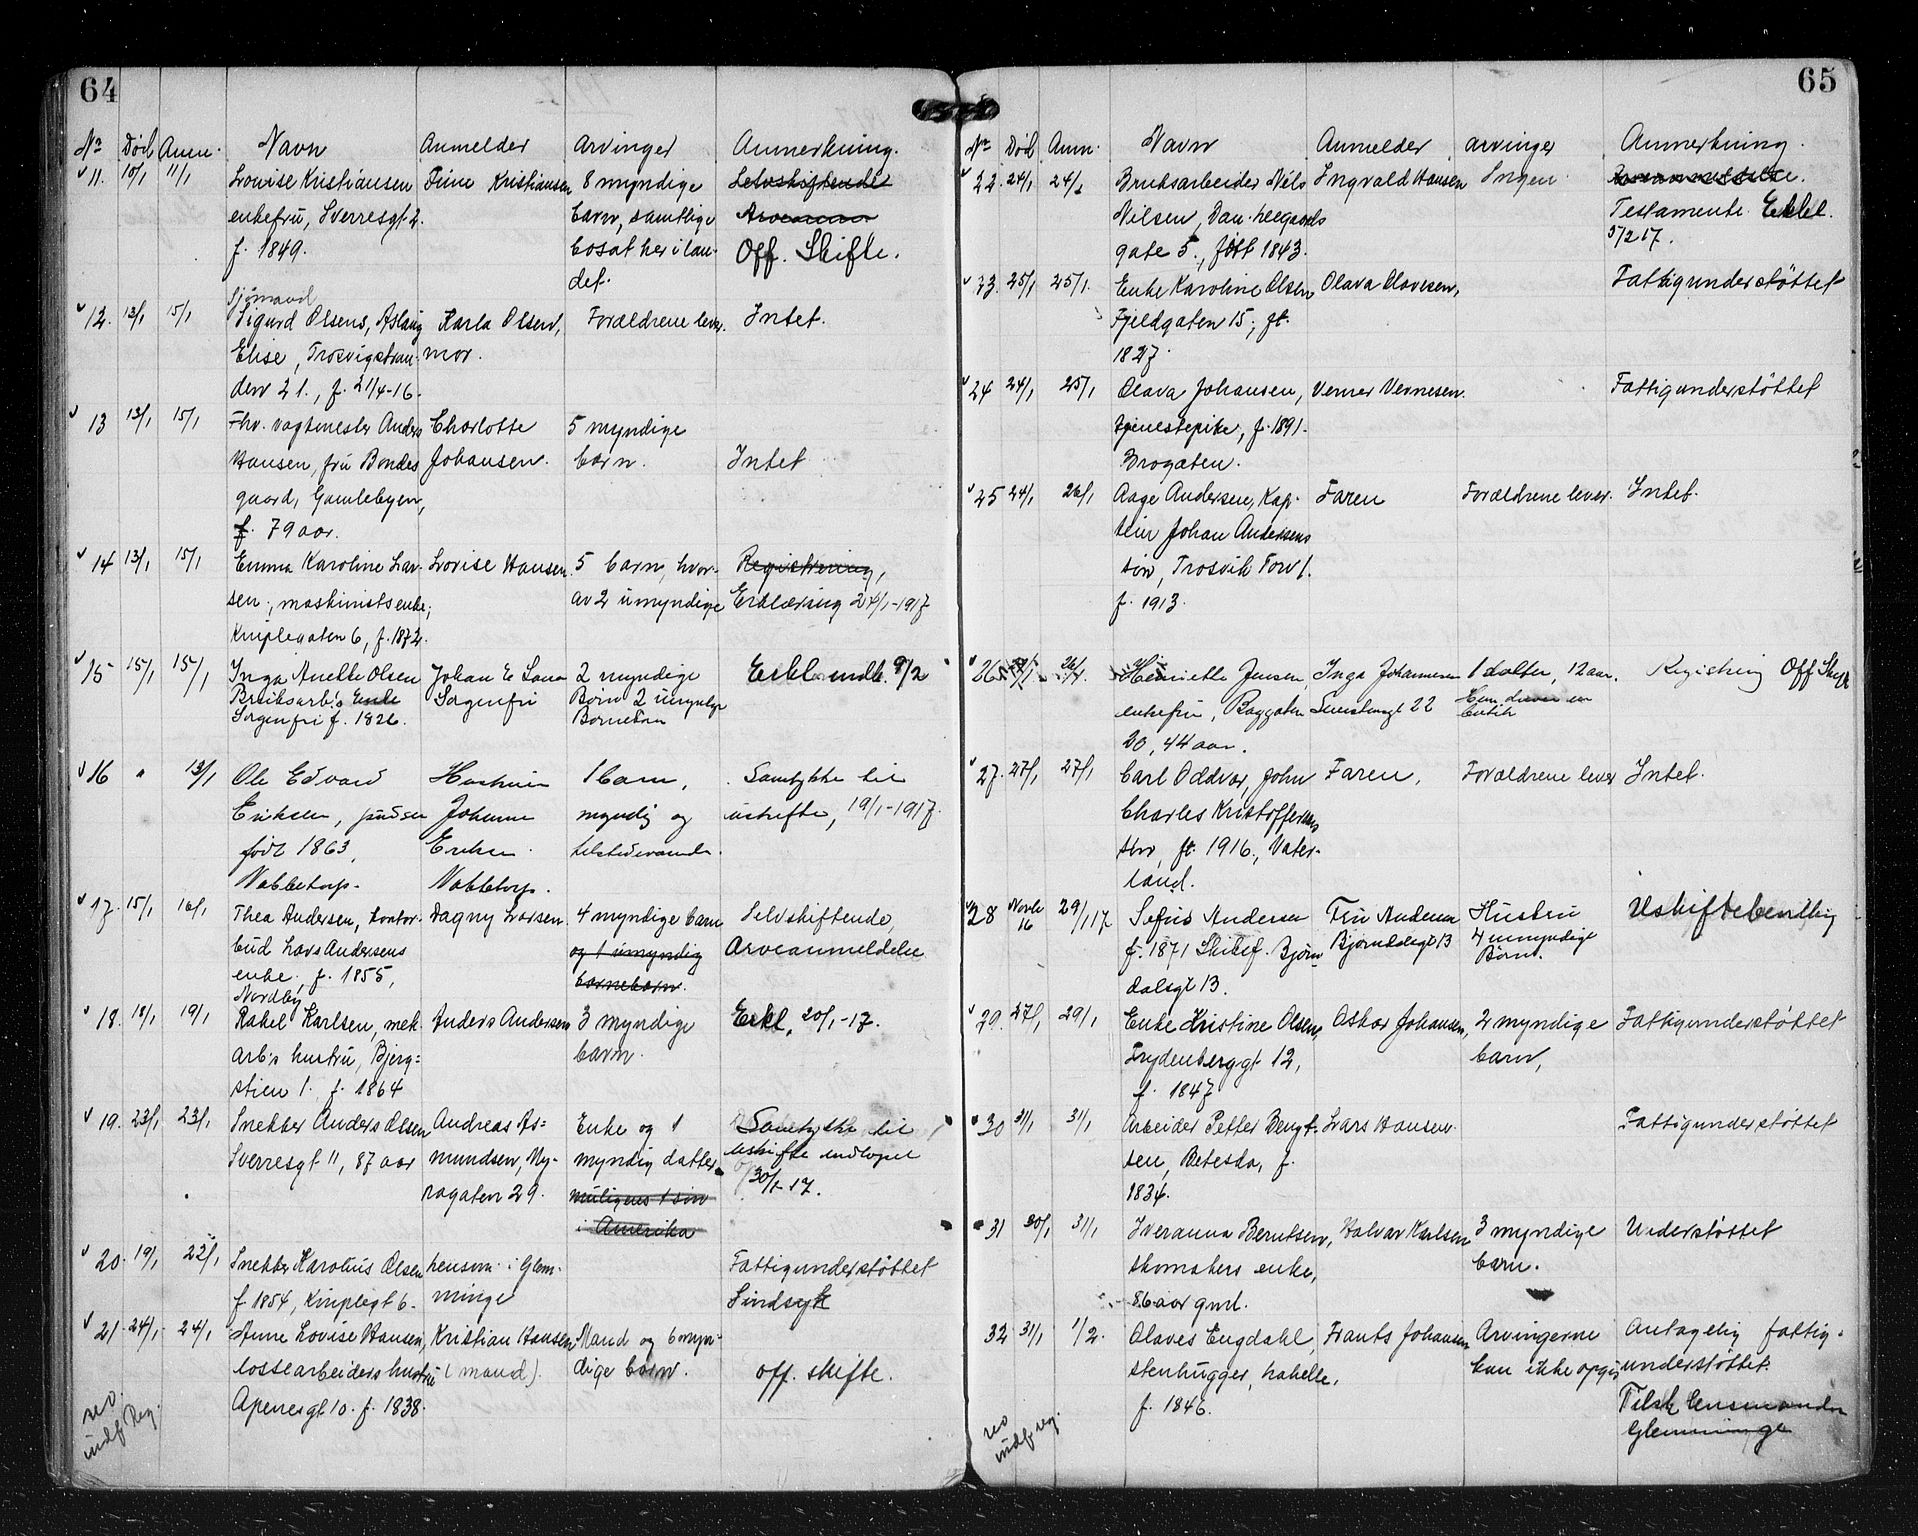 64
No Död Anm. Navn Anmelder Arvinger Anmerkning.
11. 10/1 11/1 Lovise Kristiansen Trine Kristiansen 8 myndige Selvskiftende
enkefru, Sverresgt 2. barn, samtlige
f. 1849. bosat her i lan- Off. Skifte.
det.
Sjömand
12. 13/1 15/1 Sigurd Olsens, Aslaug Karla Olsen, Forældrene lever. Intet.
Elise, Trosvigstran- mor.
den 21., f. 21/4-16.
13 13/1 15/1 Fhv. vagtmester Anders Charlotte 5 myndige
Hansen, fru Bondes Johansen. barn. Intet
gaard, Gamlebyen,
f. 79 aar.
14 13/1 15/1 Emma Karoline Lar- Lovise Hansen. 5 barn, hvor- Registrering,
sen, maskinistsenke, av 2 umyndige Erklæring 24/1-1917
Kniplegaten 6, f. 1872.
15 15/1 15/1 Inga Anette Olsen Johan E 2 myndige Erkl. indl. 9/2
Bruksarb's Enke Sorgenfri Börn 2 umyndge
Sorgenfri f. 1826. Börnebörn
16 " 13/1 Ole Edvard Hustruen 1 barn, Samtykke til
Eriksen, Johanne myndig og uskifte, 19/1-1917.
født 1863, Eriksen. tilstedeværende.
Nabbetorp. Nabbetorp.
17. 15/1 16/1 Thea Andersen, kontor- Dagny Larsen. 4 myndige barn Selvskiftende,
bud Lars Andersens og 1 umyndig Arveanmeldelse
enke, f. 1855, barnebarn.
Nordby
18. 18/1 19/1 Rakel Karlsen, mek. Anders Andersen 3 myndige Erkl. 20/1-17.
arb.s hustru, Bjerg= barn.
stien 1. f. 1864
19. 23/1 23/1 Snekker Anders Olsen Andreas As= Enke og 1 Samtykke til
Sverresgt 11, 87 aar mundsen, Ny- myndig datter uskifte indlöpet
ragaten 29. muligens 1 sön 30/1-17.
i Amerika
20. 19/1 22/1 Snekker Karolius Olsen hensom. i Glem- Fattigunderstöttet
f. 1854, Kniplegt 6. minge Sindsyk
21. 24/1 24/1 Anne Lovise Hansen, Kristian Hansen Mand og 6 myn-
lossearbeiders hustru (mand). dige barn. off. skifte.
Apenesgt 10. f. 1838.
rev.
indf. Reg.
65
No Död Anm. Navn Anmelder arvinger Anmerkning.
22. 24/1 24/1 Bruksarbeider Nils Ingvald Hansen Ingen
Nilsen, Dan. Leegaards Testamente. Erkl.
gate 5., født 1843. 5/2 17.
23. 25/1 25/1. Enke Karoline Olsen Olava Olavesen, Fattigunderstöttet
Fjeldgaten 15, ft.
1827.
24 24/1 25/1 Olava Johansen, Verner Vernesen. Fattigunderstöttet
tjenestepike, f. 1891.
Brogaten.
25 24/1 26/1 Aage Andersen, Kap- Faren Forældrene lever. Intet.
tein Johan Andersens
sön, Trosvik Torv 1.
f. 1913.
26 26/1 Henriette Jensen, Inga Johannesen 1 datter, 12 aar. Registring Off Skifte
enkefru, Baggaten 22
20, 44 aar.
27. 27/1 27/1 Carl Oddvar, John Faren, Forældrene lever Intet.
Charles Kristoffersens
sön, ft. 1916, Vater-
land.
28 Novbr 16 29/1 17 Sefus Andersen Fru Andersen Hustru Uskiftebevilling
f. 1871 Skibsf. Björn Bjørndalsgt 13 4 umyndige
dalsgt 13. Börn.
29. 27/1 29/1 Enke Kristine Olsen, Oskar Johansen, 2 myndige Fattigunderstöttet
Frydenberggt 12, barn,
f. 1847
30 31/1 31/1 Arbeider Petter Bengt- Lars Hansen. Fattigunderstöttet
sen, Betesda, f.
1834.
31 30/1 31/1 Iveranna Berntsen, Halvar Karlsen 3 myndige Understöttet
skomakers enke, barn.
86 aar gml.
32 31/1 1/2. Olaves Engdahl, Frants Johansen Arvingerne Antagelig fattig-
stenhugger, kan ikke opgis understöttet.
f. 1846. Tilsk lensmanden
Glemminge
rev
indf reg.